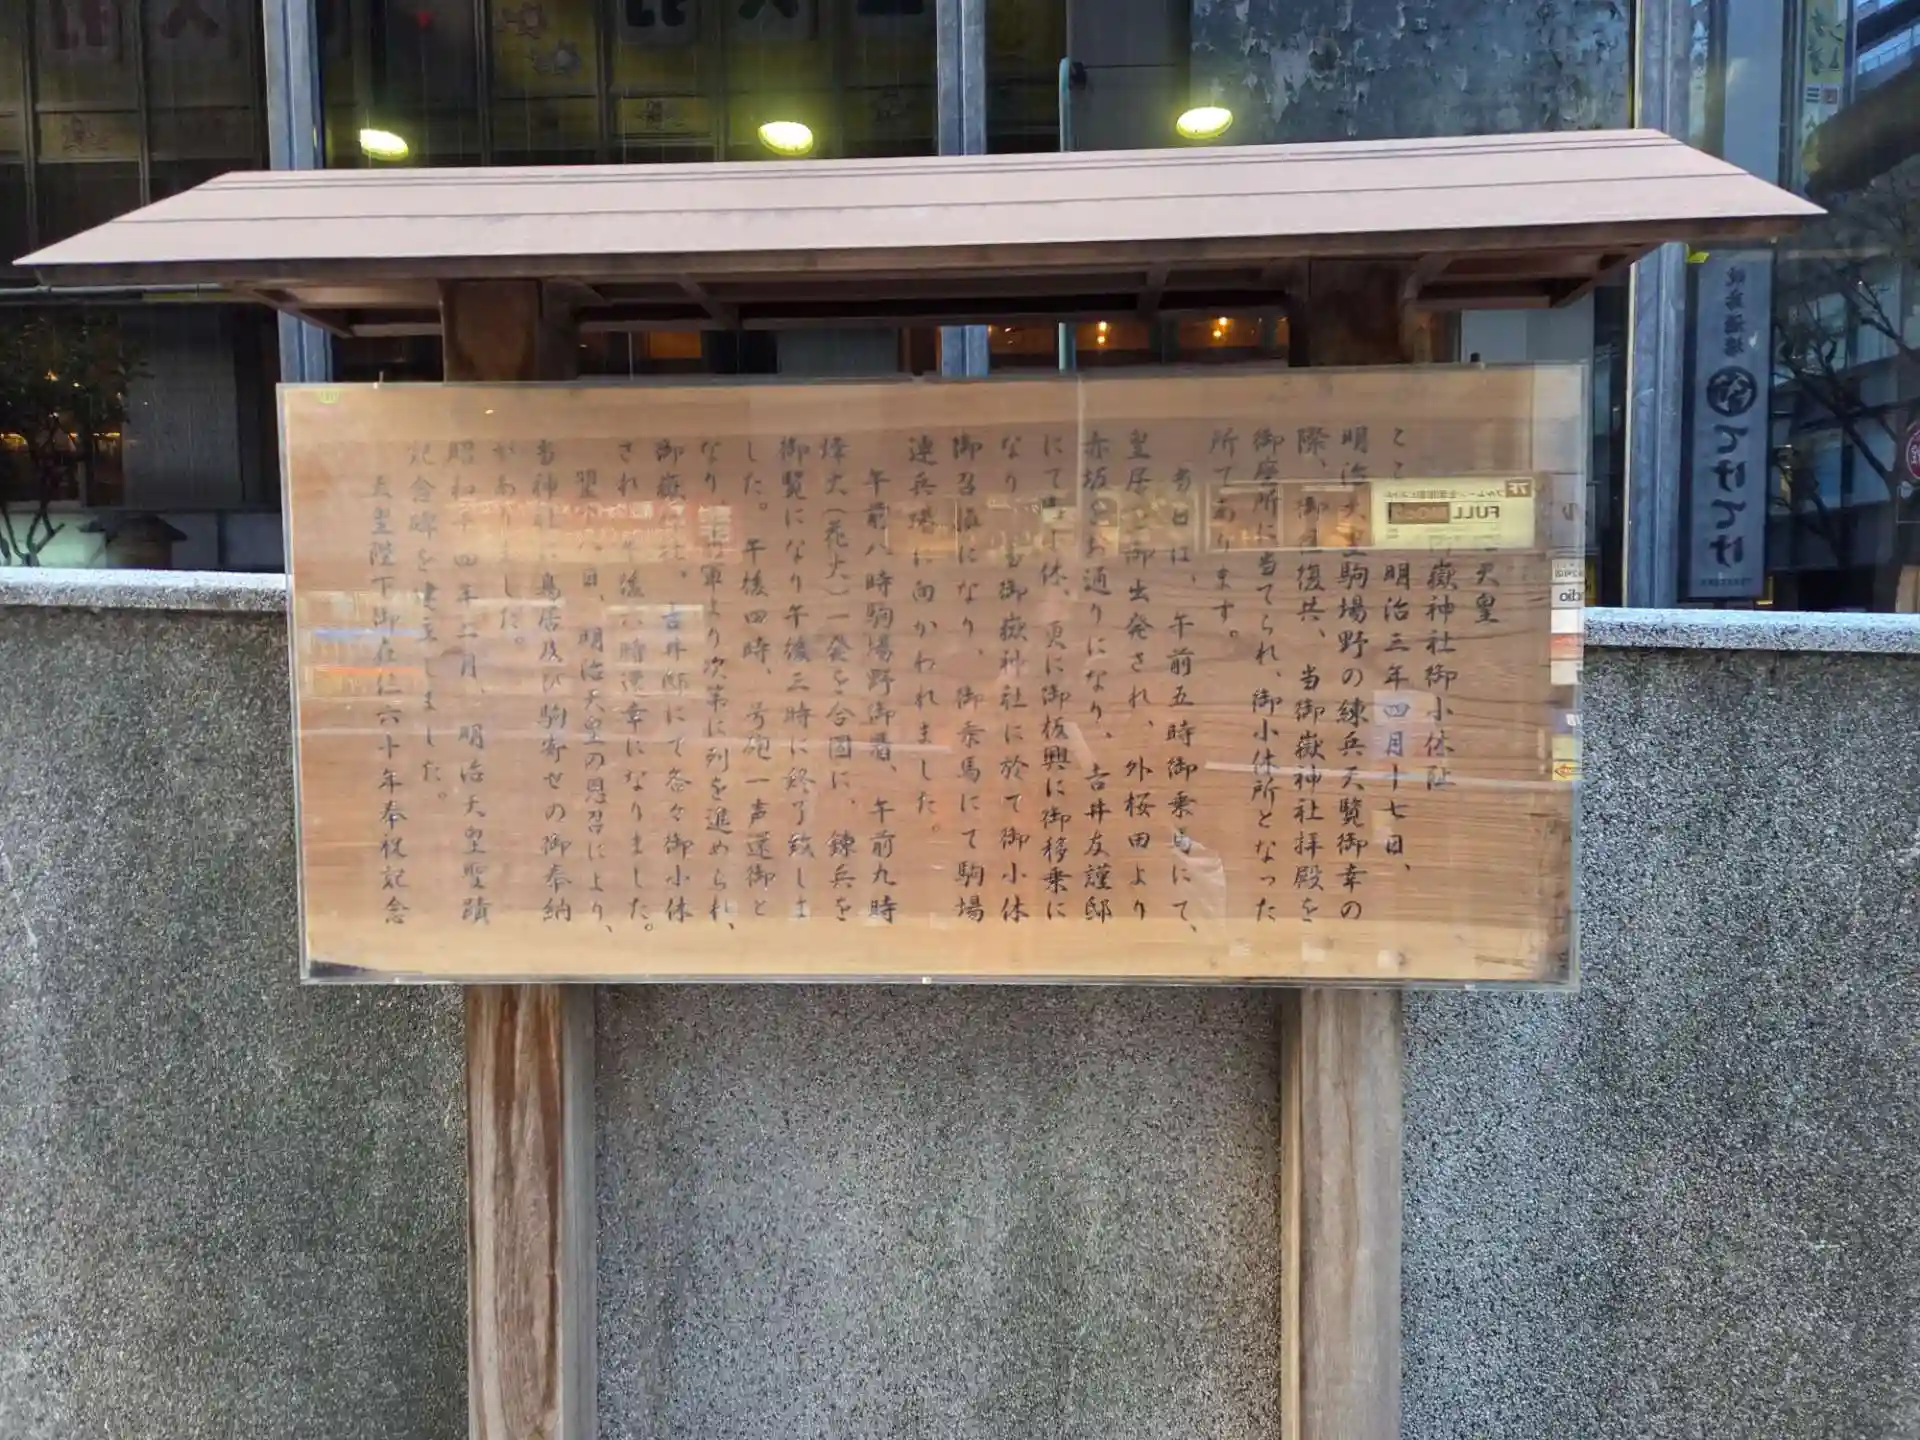 天皇
嶽神社御小休阯
ここ 明治三年四月十七日、
明治天皇駒場野の練兵天覧御幸の
際、御往復共、当御嶽神社拝殿を
御座所に当てられ、御小休所となった
所であります。
当日は、午前五時御乗馬にて、
皇居を御出発され、外桜田より
赤坂をお通りになり、吉井友謹邸
にて御小休、更に御板輿に御移乗に
なり、 御嶽神社に於て御小休
御召換になり、御乗馬にて駒場
連兵場に向かわれました。
午前八時駒場野御着、午前九時
烽火(花火)一発を合図に、錬兵を
御覧になり午後三時に終了致しま
した。午後四時、号砲一声還御と
なり、 軍より次第に列を進められ、
御嶽 社、吉井邸にて各々御小休
され 午後八時還幸になりました。
翌 八日、明治天皇の思召により、
当神社に鳥居及び駒寄せの御奉納
がありました。
昭和 十四年二月、明治天皇聖蹟
記念碑を建立しました。
天皇陛下御在位六十年奉祝記念
FULL
7F
とけとけ